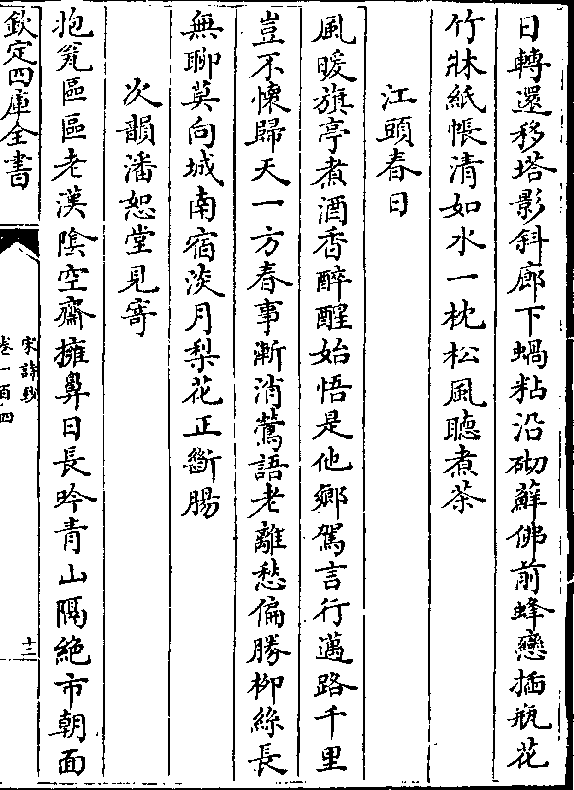 日轉還移塔影斜廊下蝸粘沿砌蘚佛前蜂戀揷瓶花
竹牀紙帳清如水一枕松風聽煮茶
江頭春日
風暖旗亭煮酒香醉醒始悟是他鄉駕言行邁路千里
豈不懷歸天一方春事漸消鶯語老離愁偏勝柳絲長
無聊莫向城南宿淡月梨花正斷腸
次韻潘恕堂見寄
抱瓮區區老漢隂空齋擁鼻日長吟青山隔絶市朝面
欽定四庫全書
宋詩鈔
卷一百四
十三